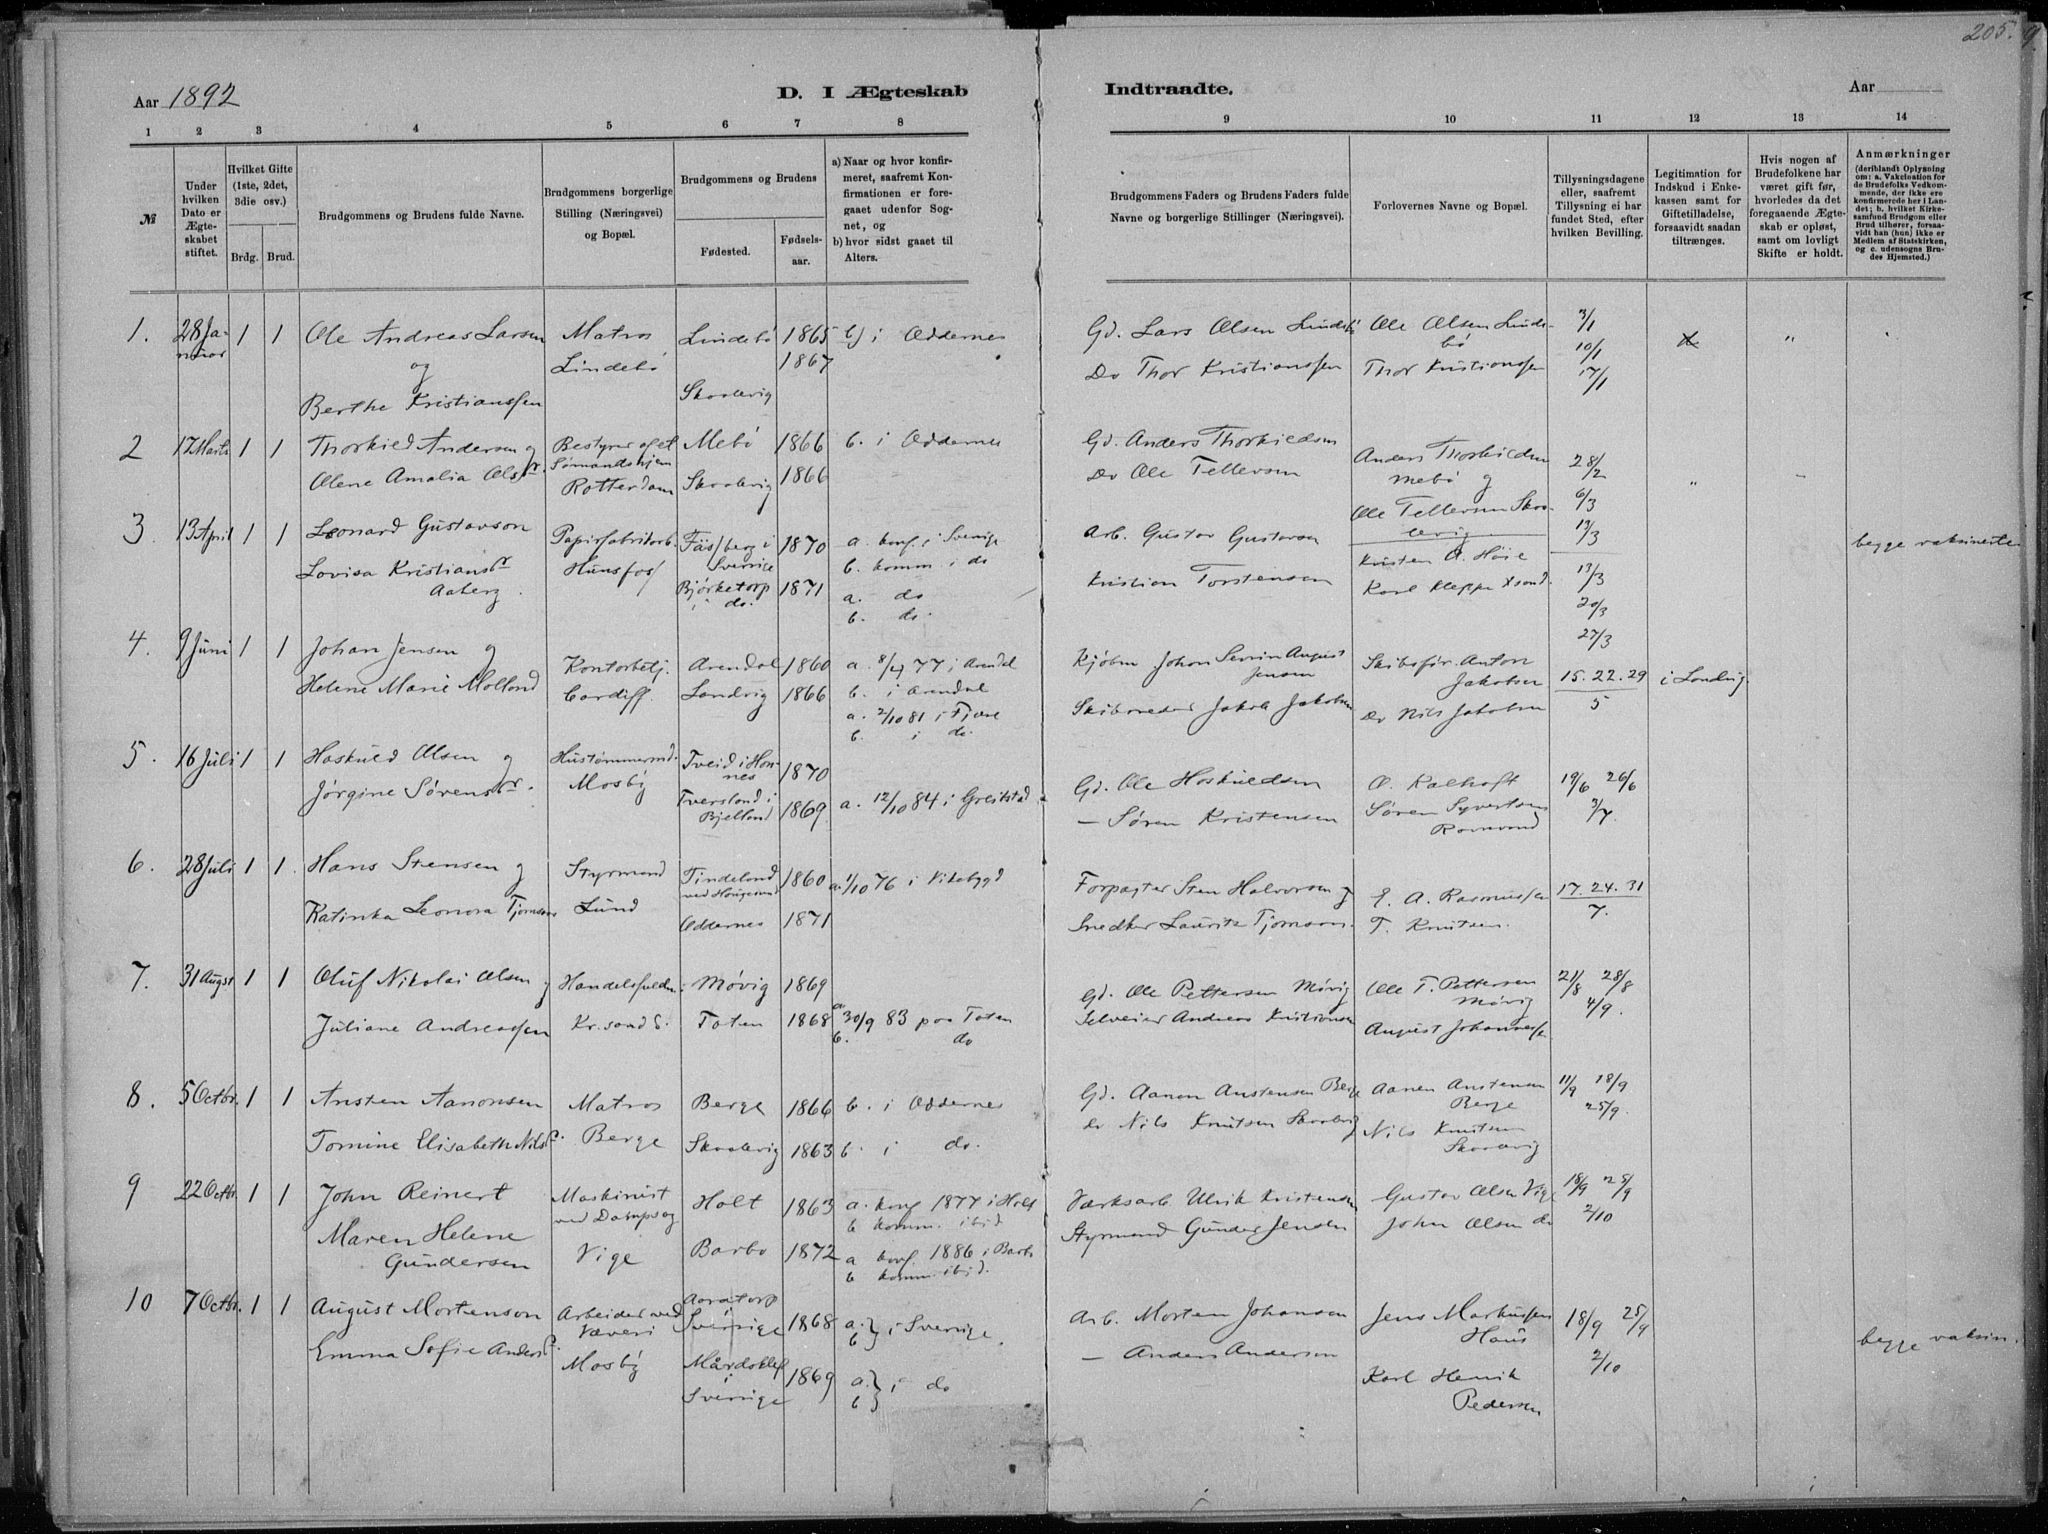 205.
Aar 1892
D. I Ægteskab
Indtraadte.
Aar
1 2 3 4 5 6 7 8 9 10 11 12 13 14
№
Under hvilken Dato er Ægteskabet stiftet.
Hvilket Gifte (1ste, 2det, 3die osv.)
Brdg. Brud.
Brudgommens og Brudens fulde Navne.
Brudgommens borgerlige Stilling (Næringsvei) og Bopæl.
Brudgommens og Brudens
Fødested.
Fødselsaar.
a) Naar og hvor konfirmeret, saafremt Konfirmationen er foregaaet udenfor Sognet, og
b) hvor sidst gaaet til Alters.
Brudgommens Faders og Brudens Faders fulde Navne og borgerlige Stillinger (Næringsvei).
Forlovernes Navne og Bopæl.
Tillysningsdagene eller, saafremt Tillysning ei har fundet Sted, efter hvilken Bevilling.
Legitimation for Indskud i Enkekassen samt for Giftetilladelse, forsaavidt saadan tiltrænges.
Hvis nogen af Brudefolkene har været gift før, hvorledes da det foregaaende Ægteskab er opløst, samt om lovligt Skifte er holdt.
Anmærkninger (deriblandt Oplysning om: a. Vakcination for de Brudefolks Vedkommende, der ikke ere konfirmerede her i Landet; b. hvilket Kirkesamfund Brudgom eller Brud tilhører, forsaavidt han (hun) ikke er Medlem af Statskirken, og c. udensogns Brudes Hjemsted.)
1. 28 Januar 1 1 Ole Andreas Larsen Matros Lindebø 1865 b) i Oddernes Gd. Lars Olsen Lindebø Ole Olsen Lindebø 3/1
og Lindebø 1867 10/1
Berthe Kristianssen Skaalevig Do Thor Kristianssen Thor Kristianssen 17/1
2 17 Marts 1 1 Thorkild Andersen og Bestyrer af et Mebø 1866 b. i Oddernes Gd. Anders Thorkildsen Anders Thorkildsen
Olene Amalia Olsdr. Sømandshjem Skaalevig 1866 Do Ole Tellefsen Mebø og 28/2
Rotterdam Ole Tellefsen Skaalevig 6/3 13/3
3 13 April 1 1 Leonard Gustavson Papirfabrikarb. Fässberg i Sverrige 1870 a. konf. i Sverige Arb. Gustav Gustavson Kristen A. Høie 13/3 begge vaksinerte
Lovisa Kristiansdr Hunsfos b. komm. i do
Aaberg. Bjørketorp i do. 1871 a. do Kristian Torstensen Karl Kleppe Xsand. 20/3
b. do. 27/3
4. 9 Juni 1 1 Johan Jensen og Kontorbetj. Arendal 1860 a. 8/4 77 i Arendal Kjøbm Johan Severin August Jensen Skibsfør. Anton Jakobsen 15. 22. 29 i Landvig
Helene Marie Molland Cardiff. Landvig 1866 b. i Arendal Skibsreder Jakob Jakobsen Do Nils Jakobsen 5
a. 2/10 81 i Fjære
b. i do.
5. 16 Juli 1 1 Haskuld Olsen og Hustømmermd. Tveid i Hornnes 1870 Gd. Ole Haskuldsen O. Kalhoft 19/6 26/6
Jørgine Sørensdr. Mosby Tversland i Bjelland 1869 a. 12/10 84 i Greipstad — Søren Kristensen Søren Syvertsen 3/7
6. 28 Juli 1 1. Hans Stensen og Styrmand Tindeland 1860 a. 1/10 76 i Vikebygd Forpagter Sten Halvorsen og E. A. Rasmussen 17. 24. 31
Katinka Leonora Tjomsaas Lund Oddernes 1871 Snedker Lauritz Tjomsaas. T. Knutsen. 7.
7. 31 Augst 1 1 Oluf Nikolai Olsen og Handelsfuldm. Møvig 1869 Gd. Ole Pettersen Møvig Ole T. Pettersen Møvig 21/8 28/8
Juliane Andreassen Kr.sand S. Toten 1868 a. 30/9 83 paa Toten Selveier Andreas Kristiansen August Johannessen 4/9.
b. do
8. 5 Octbr. 1 1 Ansten Aanonsen Matros Berge 1866 b. i Oddernes Gd. Aanon Anstensen Berge Aanen Anstensen Berge 11/9 18/9
Tomine Elisabeth Nilsd. Berge Skaalevig 1863 b. i do. Do Nils Knutsen Skaalevig Nils Knutsen Skaalevig 25/9.
9 22 Octbr. 1 1 John Reinert Maskinist Holt 1863 a. konf 1877 i Holt Værksarb. Ulrik Kristensen Gustav Olsen Vige 18/9 25/9
Maren Helene ved Dampsag b komm. ibid Styrmand Gunder Jensen John Olsen do 2/10
Gundersen Vige Barbo 1872 a konf. 1886 i Barbo
b komm. ibid.
10 7 Octbr. 1 1 August Mortenson Arbeider ved Sverrige 1868 a. b } i Sverrige. Arb. Morten Johansen Jens Markussen 18/9 25/9
Emma Sofie Andersd. Væveri — Anders Andersen Karl Henrik Pedersen 2/10 begge vaksin.
Mosby i Sverrige 1869 a. b } i do